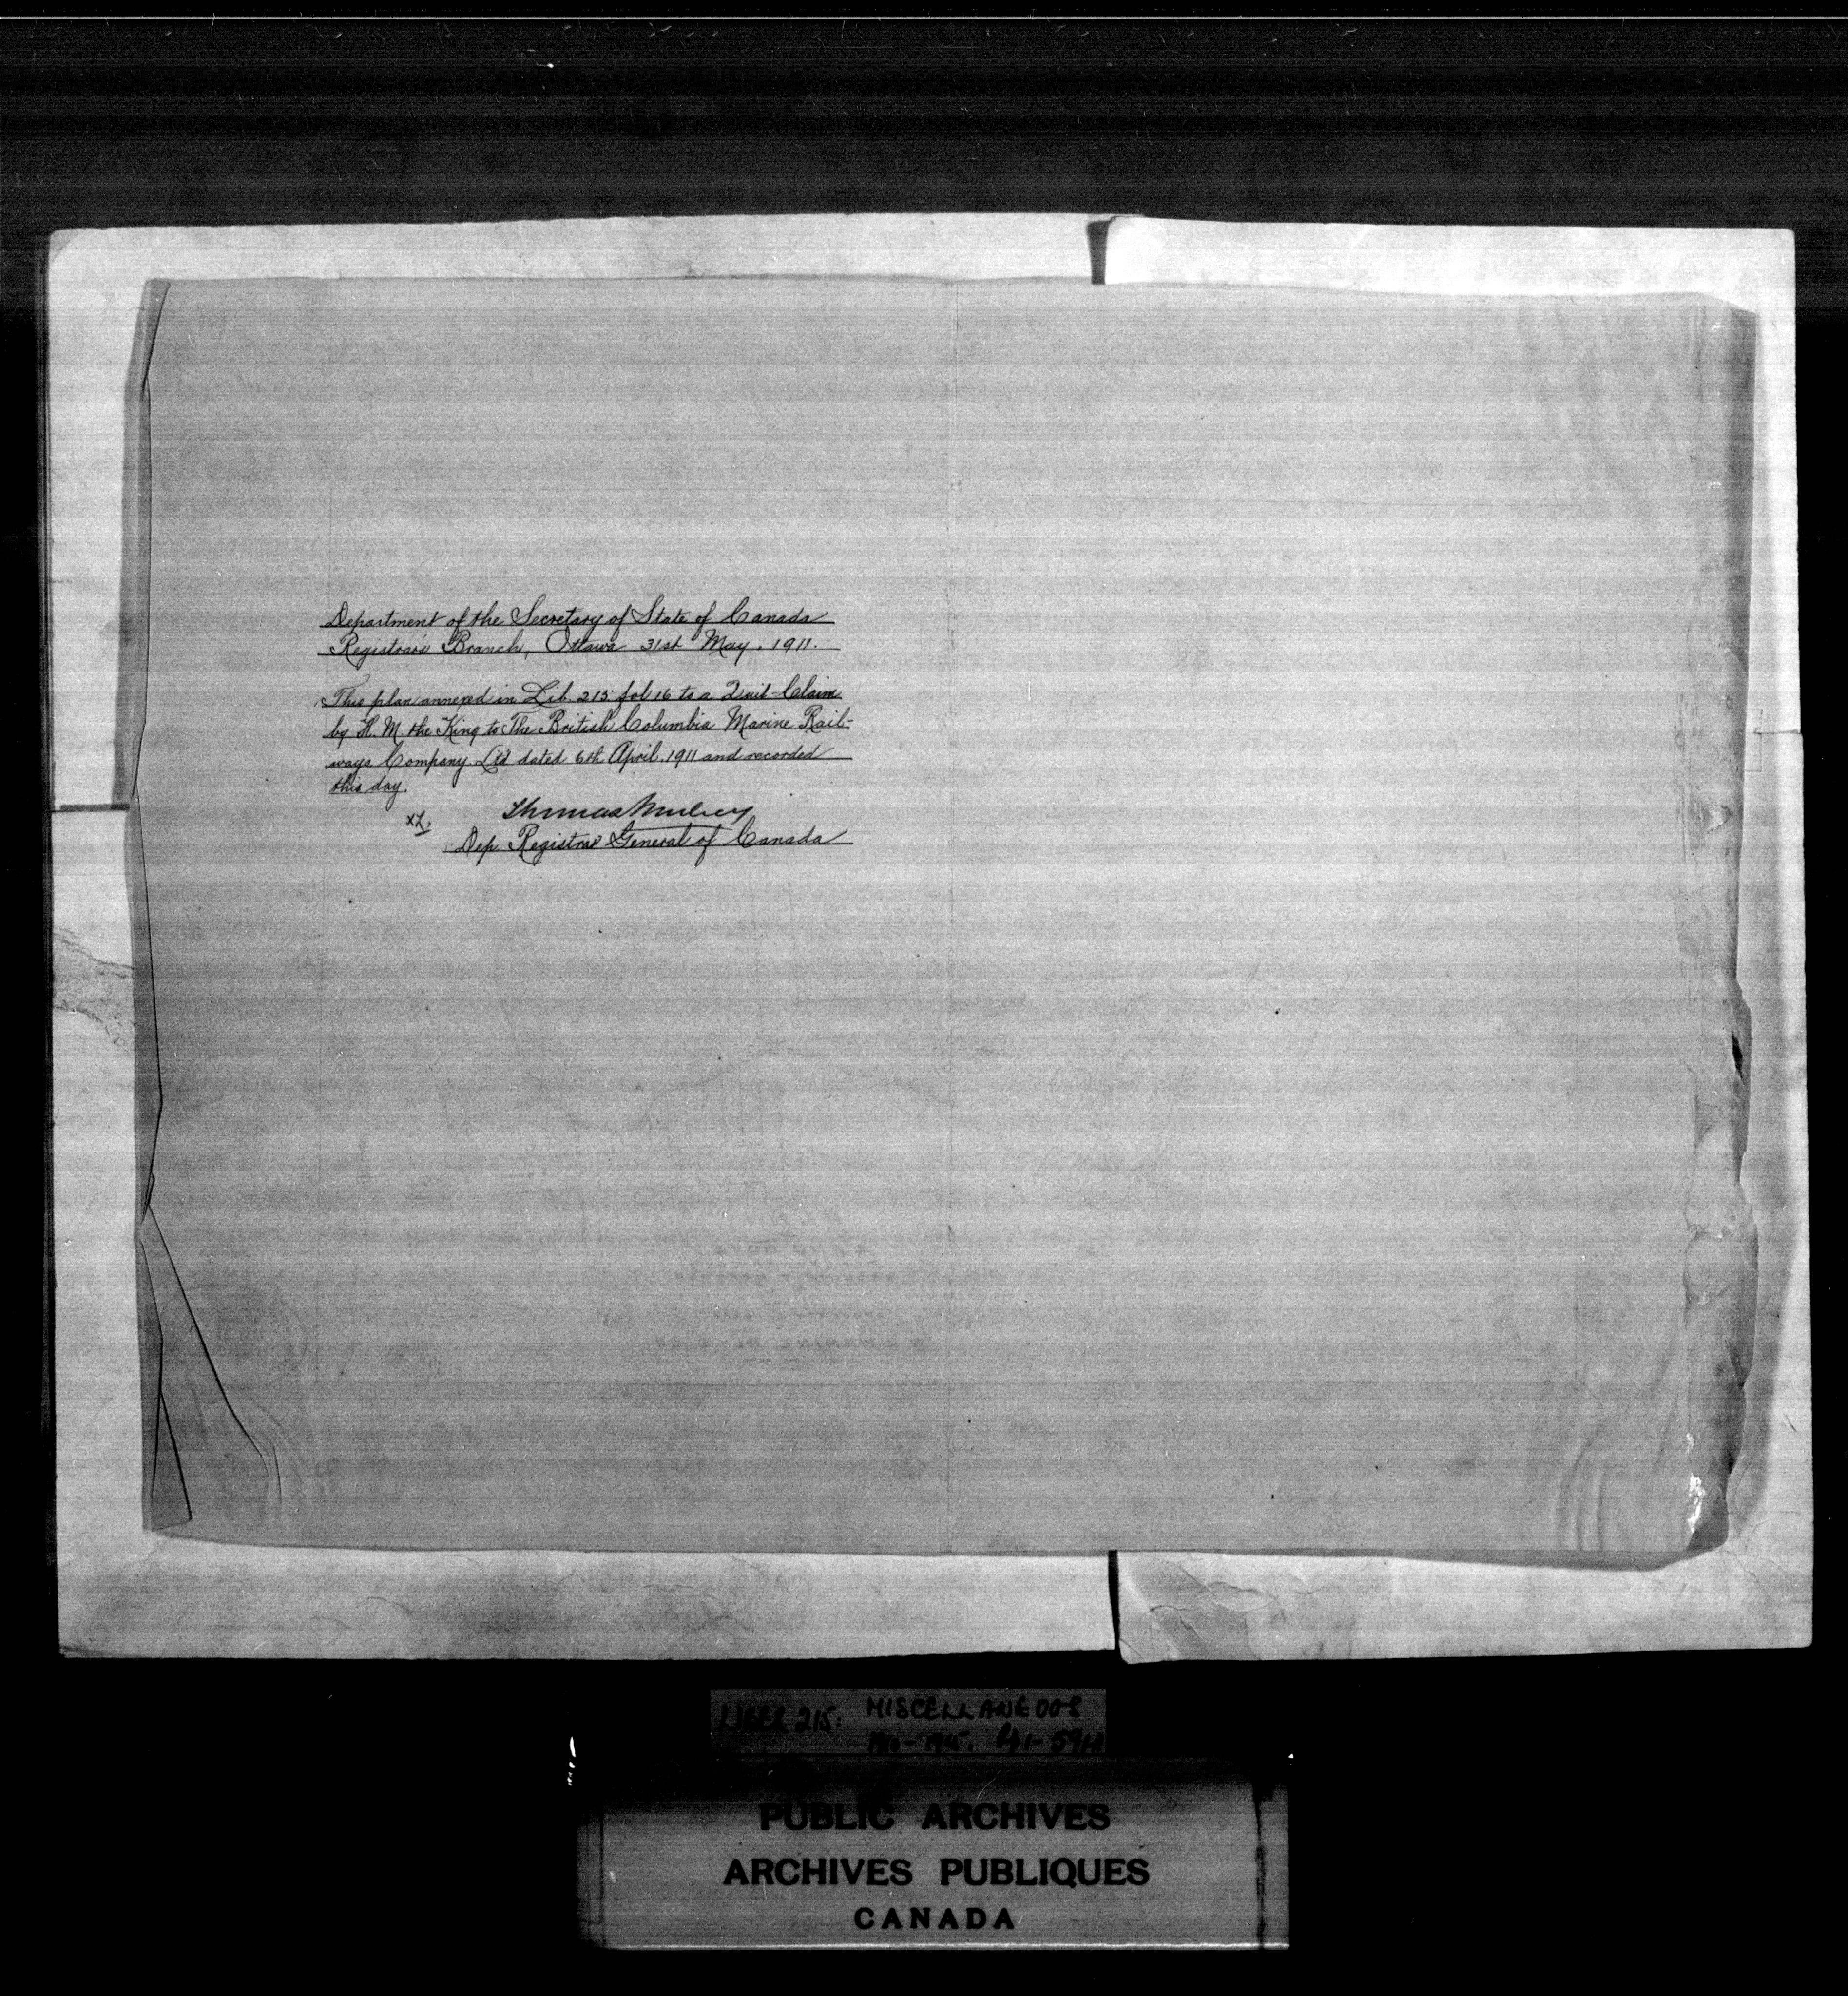 Department of the Secretary of State of Canada
Registrar's Branch, Ottawa 31st May. 1911.
This plan annexed in Lib. 215 fol 16 to a Quit-Claim
by H. M. the King to The British Columbia Marine Rail-
ways Company. Ltd dated 6th April. 1911 and recorded
this day.
Thomas Mulvey
Dep. Registrar General of Canada
LIBER 215: MISCELLANEOUS
PUBLIC ARCHIVES
ARCHIVES PUBLIQUES
CANADA